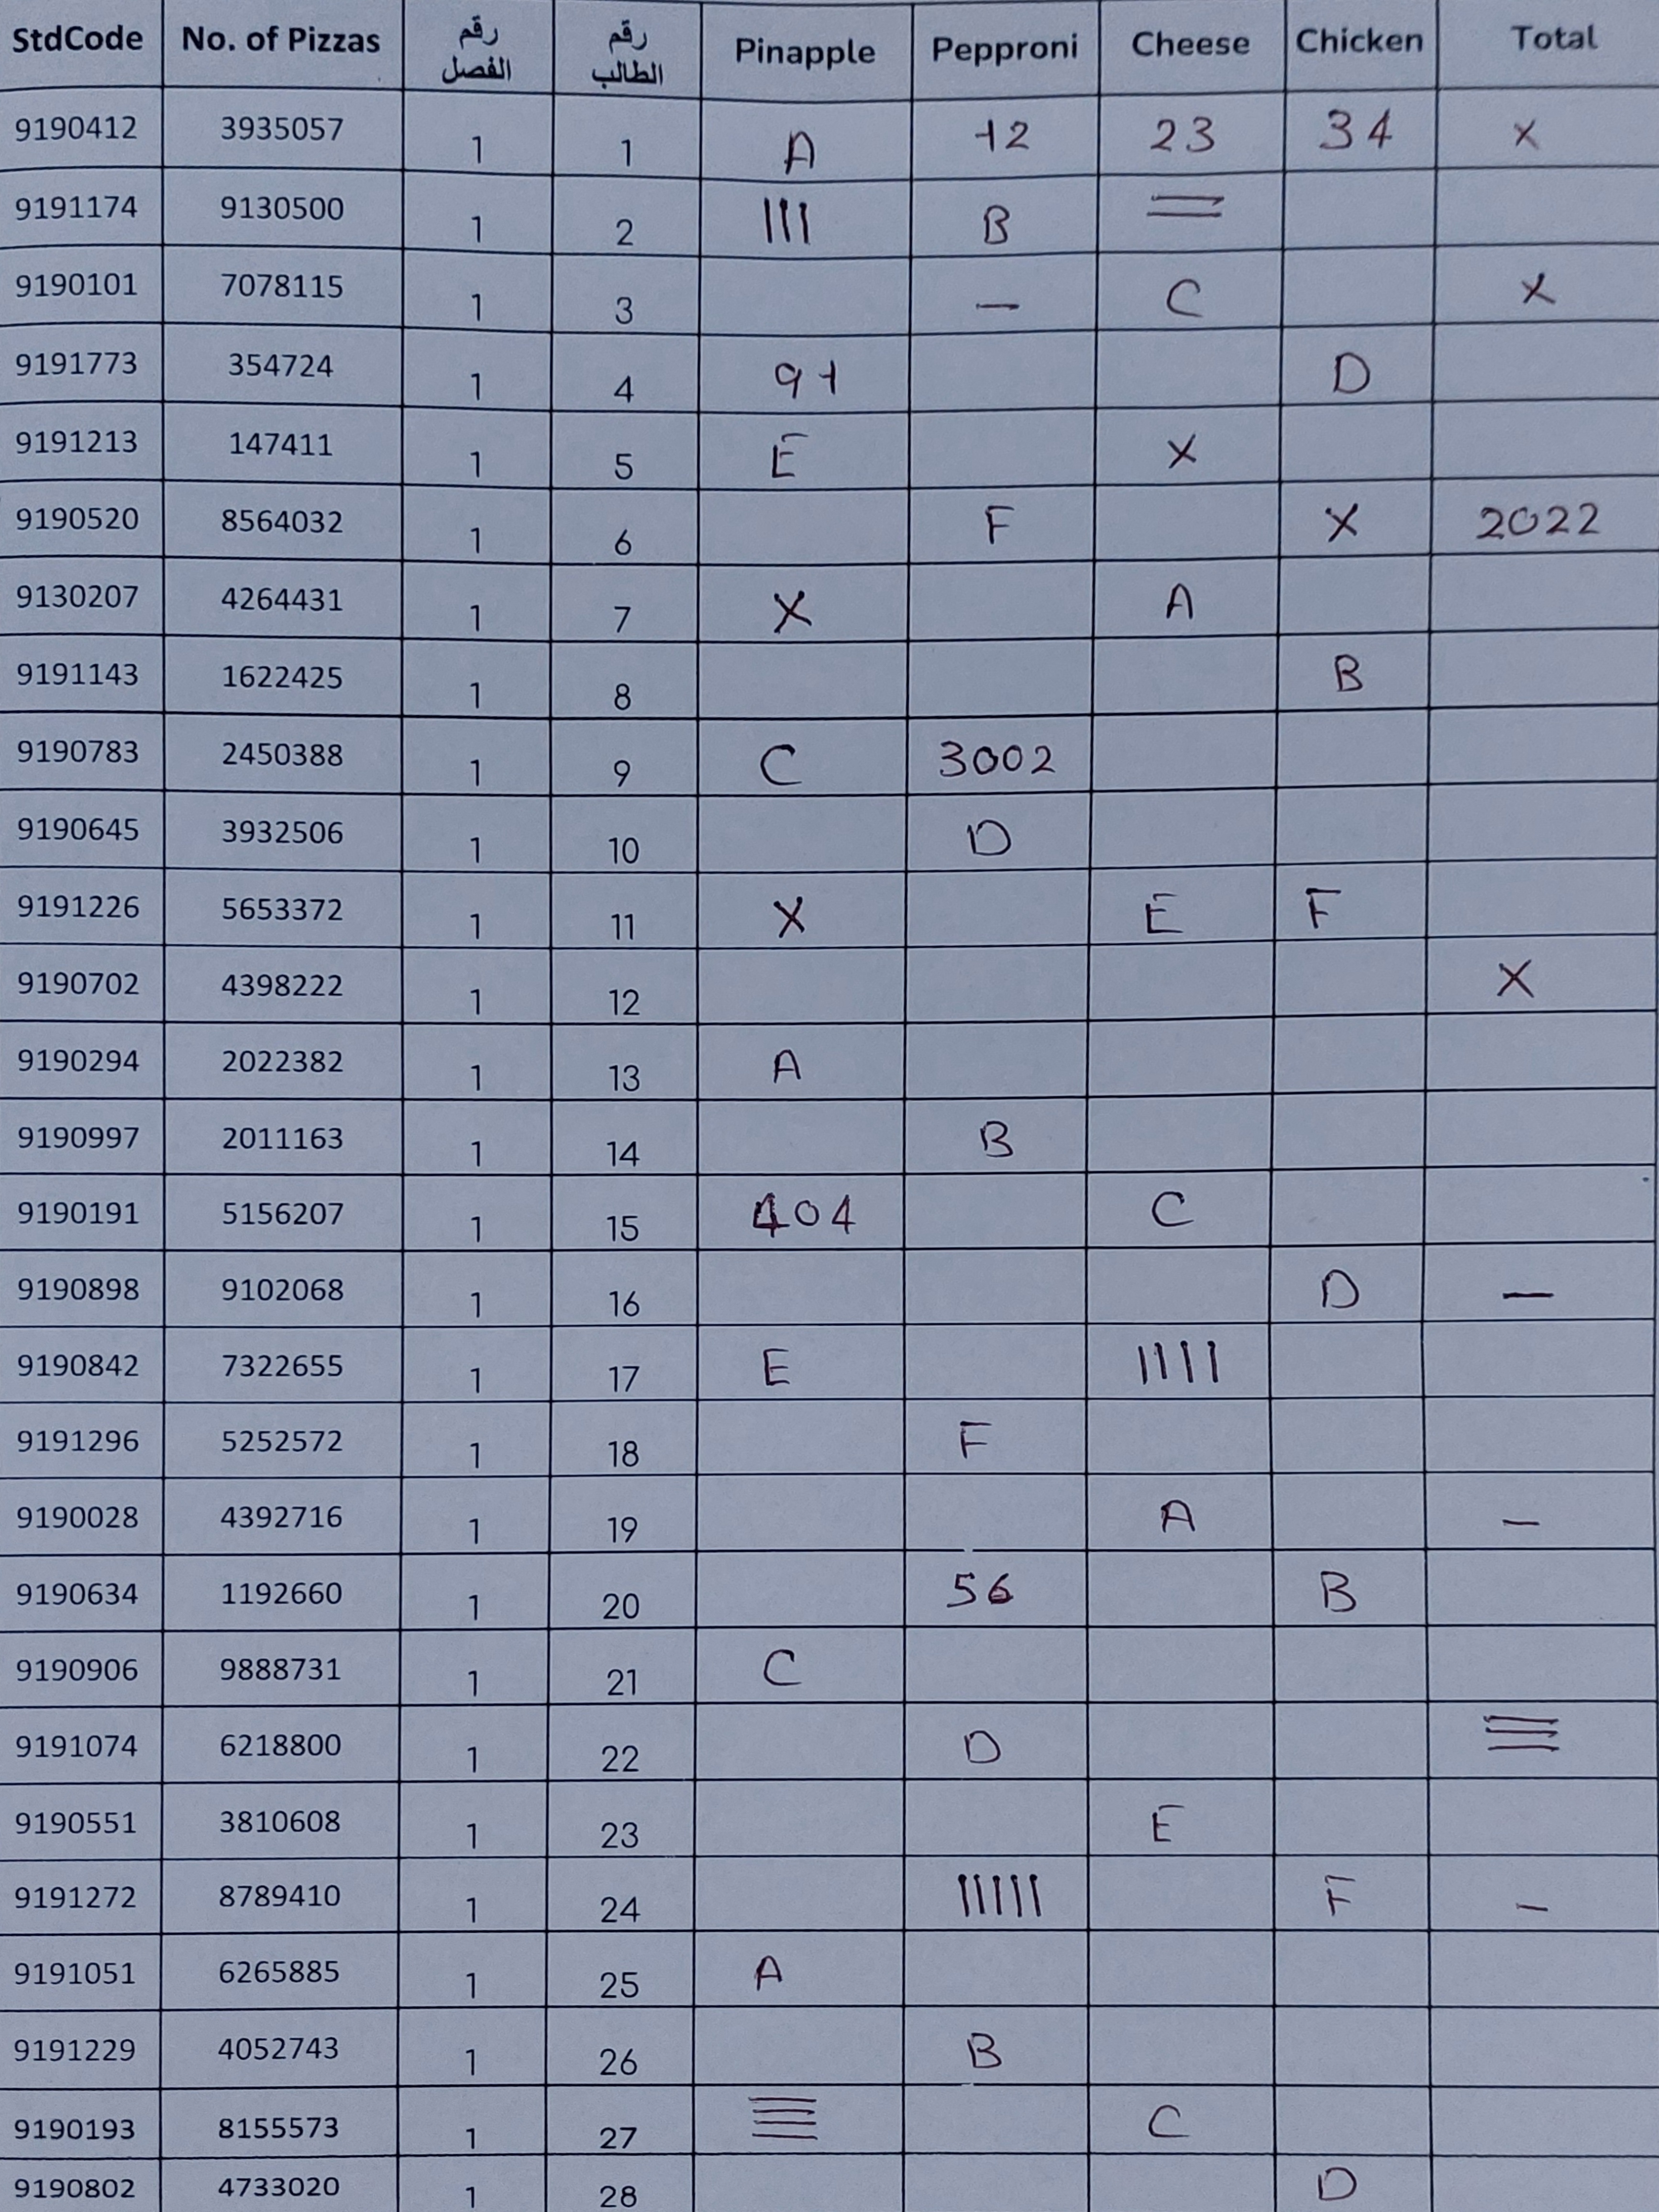 StdCode No. of Pizzas رقم الفصل رقم الطالب Pinapple Pepproni Cheese Chicken Total
9190412 3935057 1 1 A 12 23 34 X
9191174 9130500 1 2 ||| B =
9190101 7078115 1 3 — C X
9191773 354724 1 4 91 D
9191213 147411 1 5 E X
9190520 8564032 1 6 F X 2022
9130207 4264431 1 7 X A
9191143 1622425 1 8 B
9190783 2450388 1 9 C 3002
9190645 3932506 1 10 D
9191226 5653372 1 11 X E F
9190702 4398222 1 12 X
9190294 2022382 1 13 A
9190997 2011163 1 14 B
9190191 5156207 1 15 404 C
9190898 9102068 1 16 D —
9190842 7322655 1 17 E ||||
9191296 5252572 1 18 F
9190028 4392716 1 19 A —
9190634 1192660 1 20 56 B
9190906 9888731 1 21 C
9191074 6218800 1 22 D ☰
9190551 3810608 1 23 E
9191272 8789410 1 24 ||||| F —
9191051 6265885 1 25 A
9191229 4052743 1 26 B
9190193 8155573 1 27 C
9190802 4733020 1 28 D